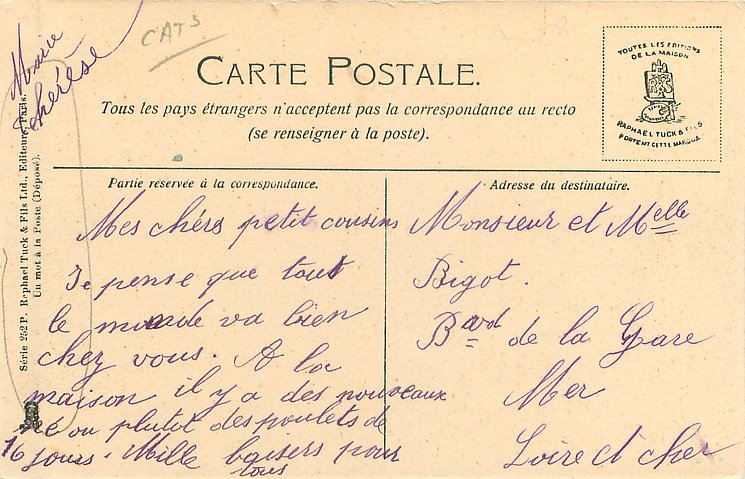 Marie
thérèse
CATS
CARTE POSTALE.
Tous les pays étrangers n'acceptent pas la correspondance au recto
(se renseigner à la poste).
TOUTES LES EDITIONS
DE LA MAISON
RAPHAEL TUCK & FILS
PORTENT CETTE MARQUE
Série 252 P. Raphael Tuck & Fils Ltd., Editeurs, Paris.
Un mot à la Poste (Déposé).
Partie reservee à la correspondance.
Mes chérs petit cousins
Je pense que tout
le monde va bien
chez vous. A la
maison il y a des nouveaux
né ou plutot des poulets de
16 jours. Mille baisers pour
tous
Adresse du destinataire.
Monsieur et Melle
Bigot.
Bavd de la Gare
Mer
Loire et cher